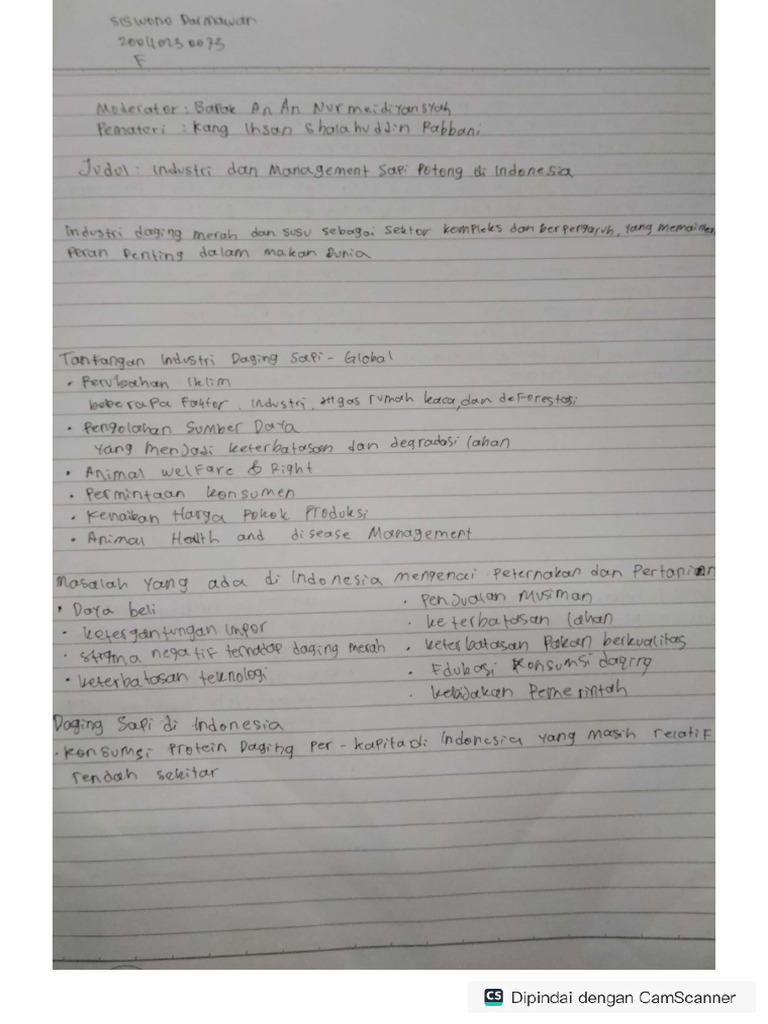 Siswono Darmawan
200110230073
F
Moderator : Bapak An An Nurmeidiyansyah
Pemateri : Kang Ihsan Shalahuddin Rabbani
Judul : Industri dan Management Sapi Potong di Indonesia
Industri daging merah dan susu sebagai sektor kompleks dan berpengaruh, yang memainkan
Peran Penting dalam makan Dunia
Tantangan Industri Daging Sapi - Global
• Perubahan Iklim
beberapa Faktor, Industri, gas rumah kaca, dan deforestasi
• Pengolahan Sumber Daya
yang menjadi keterbatasan dan degradasi lahan
• Animal welfare & Right
• Permintaan Konsumen
• Kenaikan Harga Pokok Produksi
• Animal Health and disease Management
Masalah yang ada di Indonesia mengenai Peternakan dan Pertanian
• Daya beli
• ketergantungan Impor
• stigma negatif terhadap daging merah
• keterbatasan teknologi
• Penjualan Musiman
• keterbatasan lahan
• keterbatasan Pakan berkualitas
• Edukasi Konsumsi daging
• kebijakan Pemerintah
Daging Sapi di Indonesia
• Konsumsi Protein Daging per - kapita di Indonesia yang masih relatif
rendah sekitar
CS Dipindai dengan CamScanner